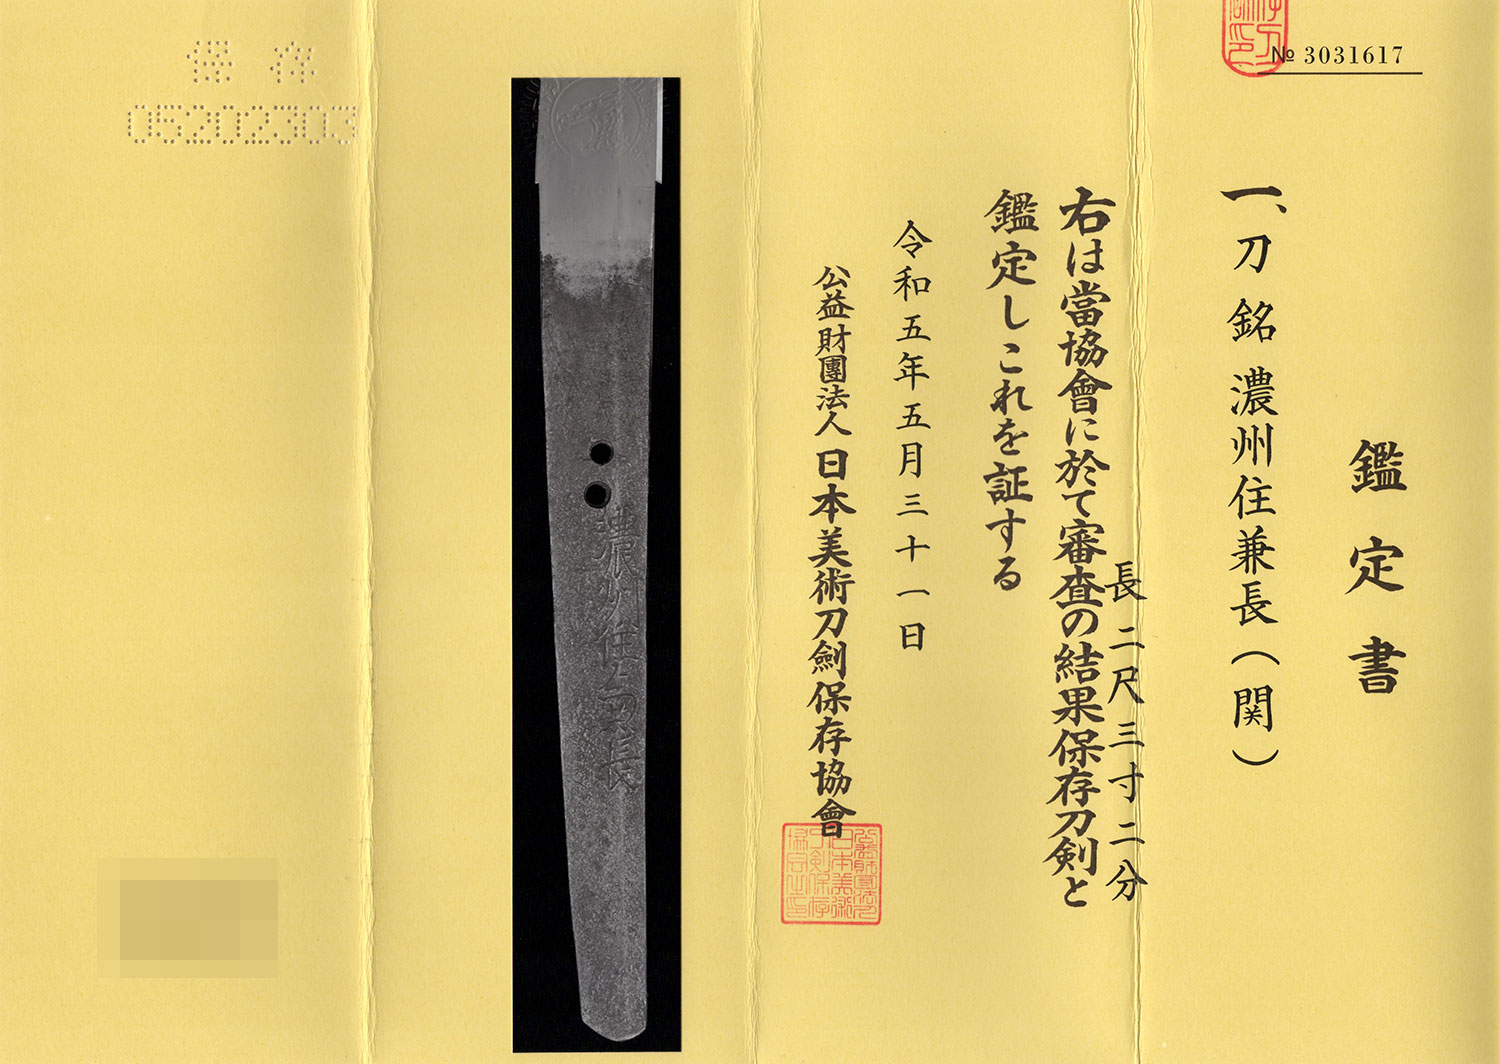 № 3031617
鑑定書
一、刀 銘 濃州住兼長(関)
長二尺三寸二分
右は當協會に於て審査の結果保存刀剣と
鑑定しこれを証する
令和五年五月三十一日
公益財團法人 日本美術刀劍保存協會
濃州住兼長
保存
05202303